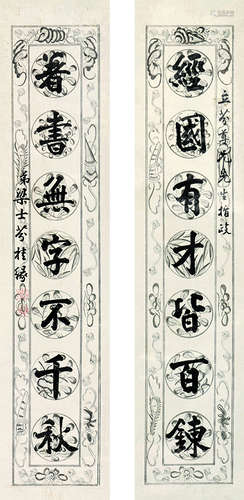 經國有才皆百鍊
立芬尊兄先生指政
著書無字不千秋
弟梁士芬桂緣